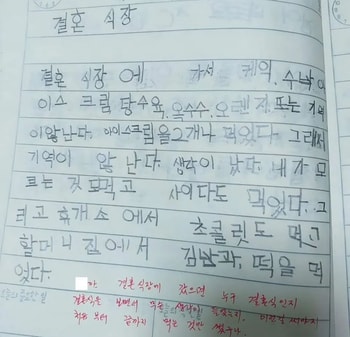 결혼 식장
결혼 식장 에 가서 케익, 수박 아
이스 크림 탕수육, 옥수수, 오렌지, 또는 기억
이 않 난다. 아이스크림을 2개나 먹었다. 그래서
기억이 않 난다. 생각이 났다. 내가 모
르는 것 도 먹고 사이다도 먹었다. 그
리고 휴개소 에서 초콜릿도 먹고
할머니 집에서 김밥과, 떡을 먹
었다.
아 결혼식장에 갔으면 누구 결혼식인지
결혼식을 보면서 무슨 생각이 들었는지, 어떻게
처음 부터 끝까지 먹는 것만 썼구나.